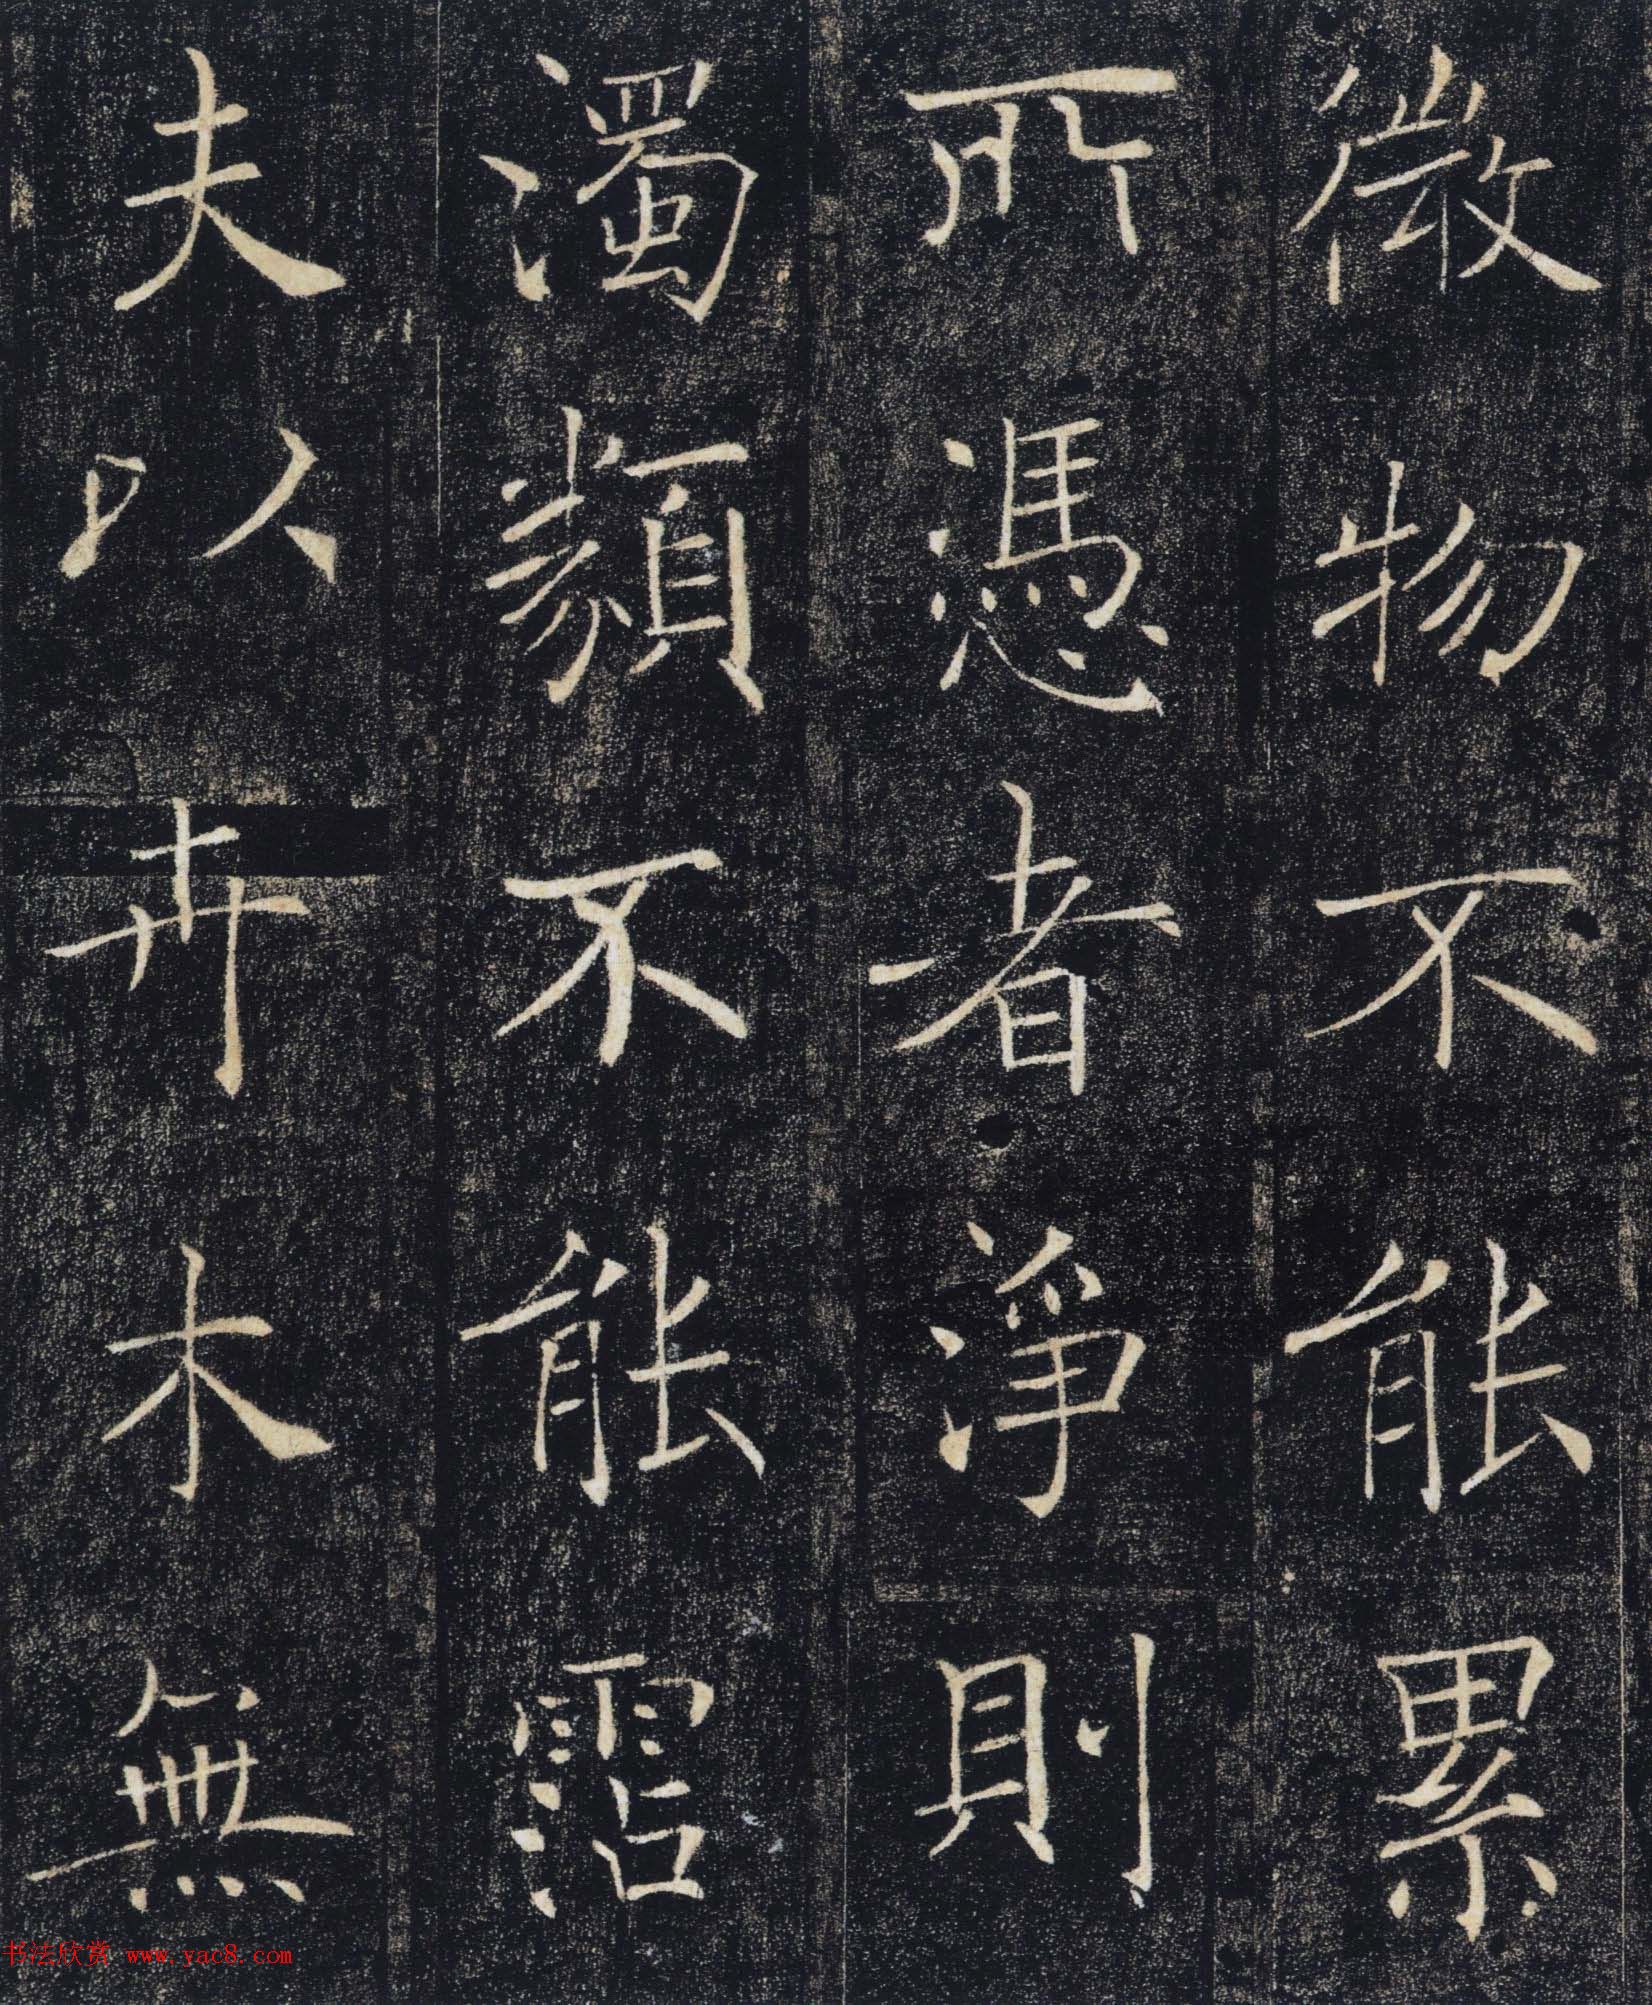 微物不能累
所憑者淨則
濁類不能霑
夫以卉木無
书法欣赏 www.yac8.com